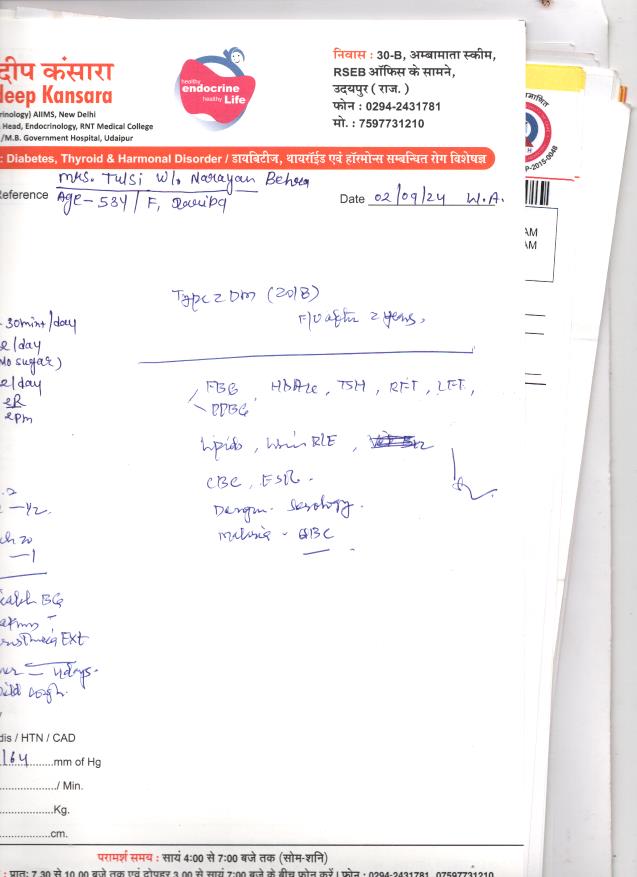 दीप कंसारा
deep Kansara
rinology) AIIMS, New Delhi
Head, Endocrinology, RNT Medical College
/M.B. Government Hospital, Udaipur
healthy
endocrine
healthy Life
निवास : 30-B, अम्बामाता स्कीम,
RSEB ऑफिस के सामने,
उदयपुर ( राज. )
फोन : 0294-2431781
मो. : 7597731210
: Diabetes, Thyroid & Harmonal Disorder / डायबिटीज, थायरॉईड एवं हॉरमोन्स सम्बन्धित रोग विशेषज्ञ
Reference
Mrs. Tulsi W/o Narayan Behra
Age - 53y / F,
Date 02/09/24 W.A.
P-2015-0048
AM
AM
Type 2 DM (2018)
F/U after 2 years.
- 30mint/day
e/day
(No sugar)
e/day
FBG, HbA1c, TSH, RFT, LFT,
PPBG
Lipids, Urine R/E,
CBC, ESR.
Dengu. Serology.
Malaria - QBC
BG
Ext
- 4days.
cough.
dis / HTN / CAD
/64 mm of Hg
/ Min.
Kg.
cm.
परामर्श समय : सायं 4:00 से 7:00 बजे तक (सोम-शनि)
: प्रातः 7.30 से 10.00 बजे तक एवं दोपहर 3.00 से सायं 7.00 बजे के बीच फोन करें। फोन : 0294-2431781, 07597731210